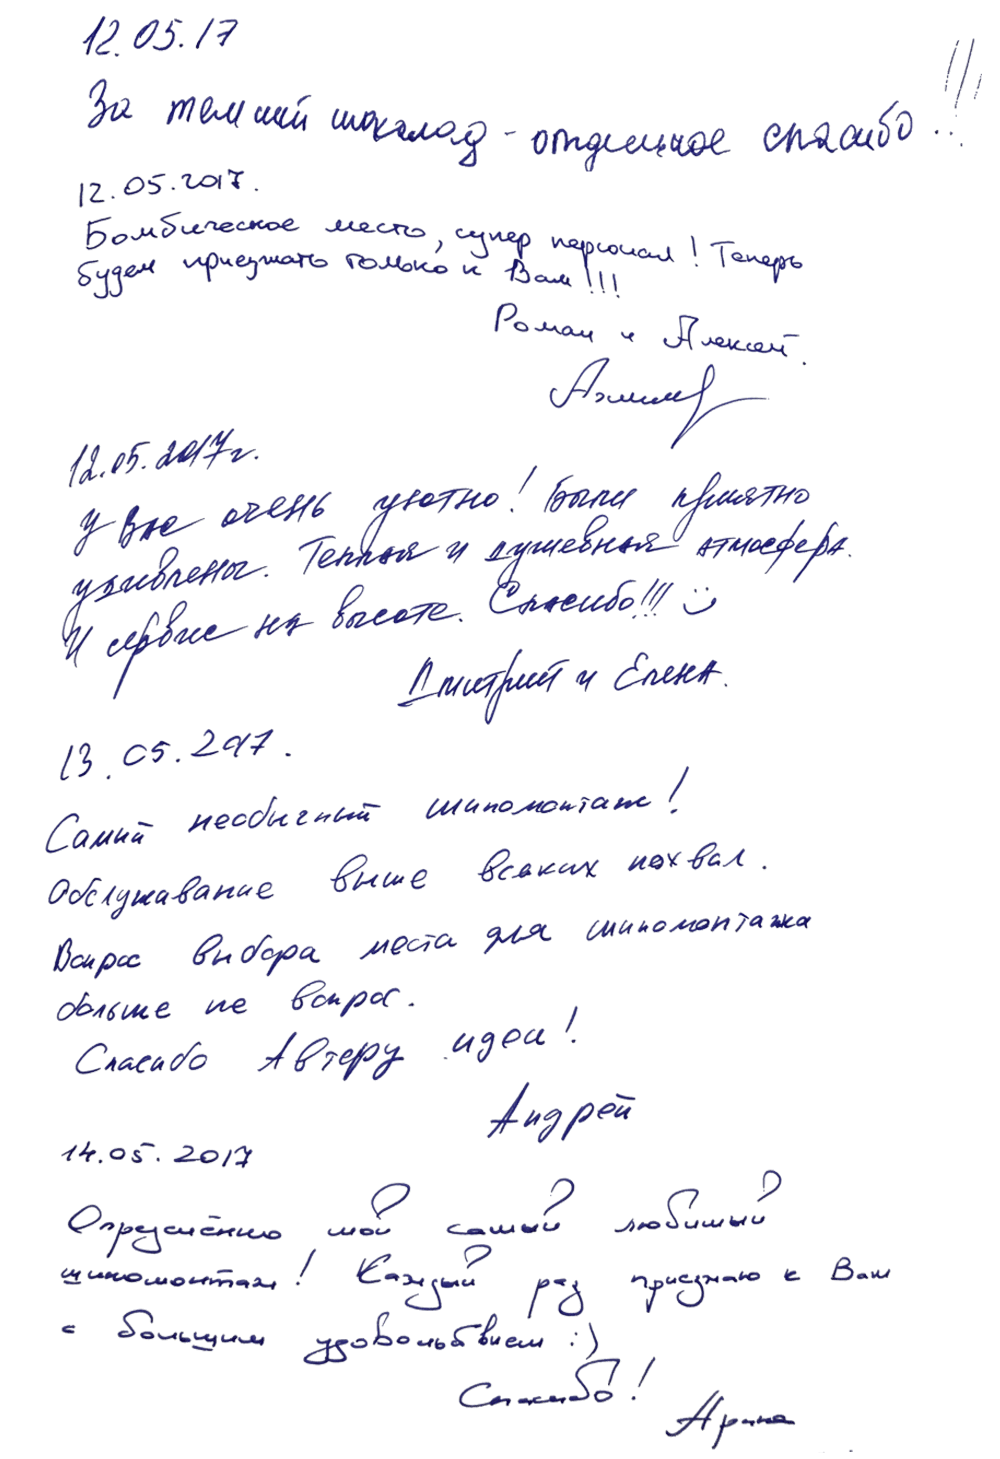 12.05.17
За темний шоколад - отдельное спасибо...!!!
12.05.2017.
Бомбическое место, супер персонал! Теперь
будем приезжать только к Вам!!!
Роман и Алексей.
12.05.2017г.
У Вас очень уютно! Были приятно
удивлены. Теплая и душевная атмосфера.
И сервис на высоте. Спасибо!!! :)
Дмитрий и Елена.
13.05.2017.
Самый необычный шиномонтаж!
Обслуживание выше всяких похвал.
Вопрос выбора места для шиномонтажа
больше не вопрос.
Спасибо Автору идеи!
Андрей
14.05.2017
Определённо мой самый любимый
шиномонтаж! Каждый раз приезжаю к Вам
с большим удовольствием :)
Спасибо!
Арина